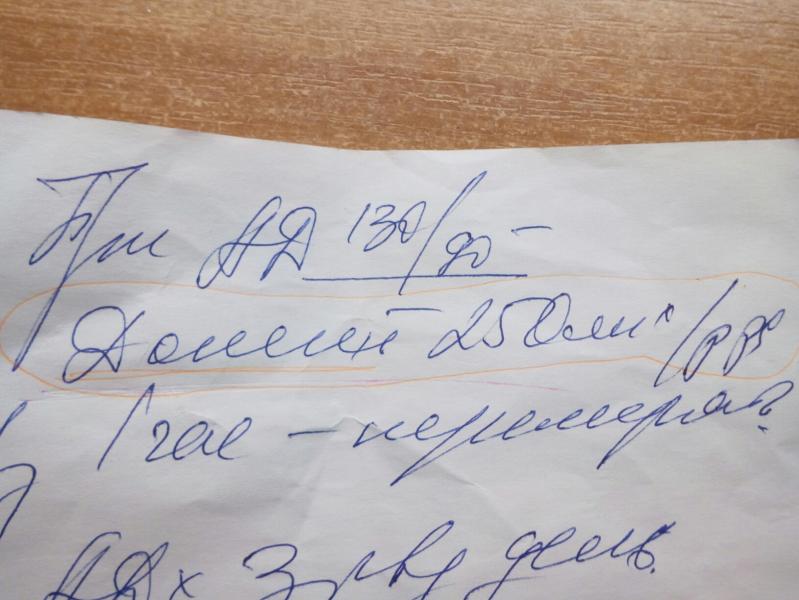 При АД 130/90
Допегит 250мг
1 час – перемерять
АД x 3 р в день.